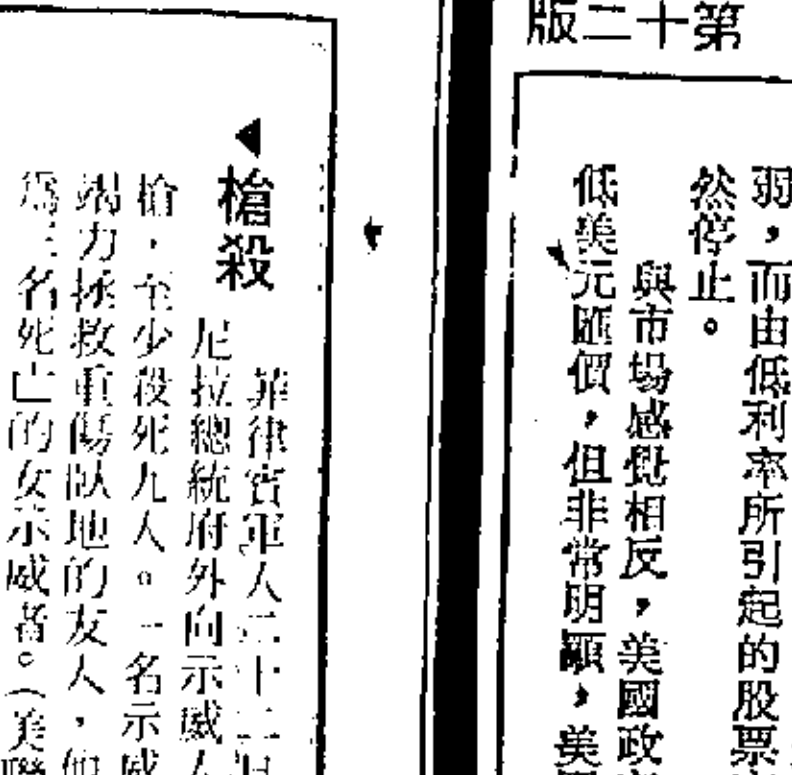 第十二版
弱，而由低利率所引起的股票
然停止。
與市場感覺相反，美國政
低美元匯價，但非常明顯，美
槍殺
菲律賓軍人二十二日
尼拉總統府外向示威人
槍，至少殺死九人。一名示威
竭力拯救重傷臥地的友人，
為三名死亡的女示威者。（美聯